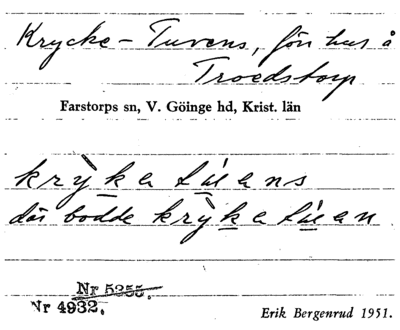 Krycke-Tuvens, förr hus å
Troedstorp
Farstorps sn, V. Göinge hd, Krist. län
krỳkatúəns
där bodde krỳkatúəan
Nr 5255.
Nr 4932.
Erik Bergenrud 1951.